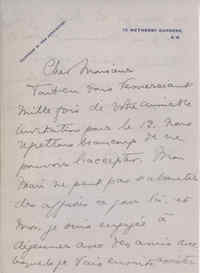 12 WETHERBY GARDENS,
S.W.
Cher Monsieur
Tout en vous remerciant
mille fois de votre aimable
invitation pour le 12. Nous
regrettons beaucoup de ne
pouvoir l'accepter. Mon
Mari ne peut pas s'absenter
des affaires ce jour là, et
moi, je suis engagée à
déjeuner avec des amis avec
lesquels je vais ensuite